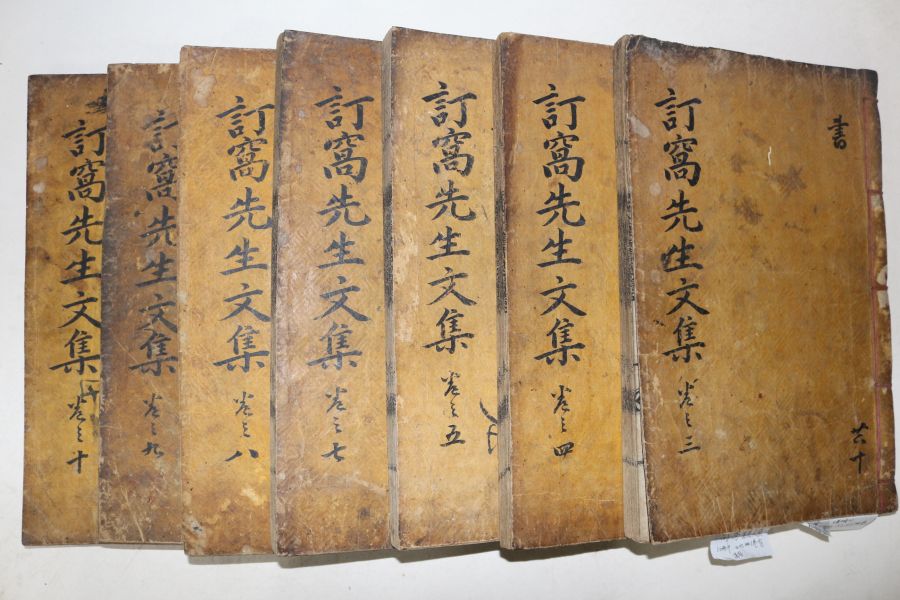 書
共十
訂窩先生文集 卷之三
訂窩先生文集 卷之四
訂窩先生文集 卷之五
訂窩先生文集 卷之七
訂窩先生文集 卷之八
訂窩先生文集 卷之九
訂窩先生文集 卷之十